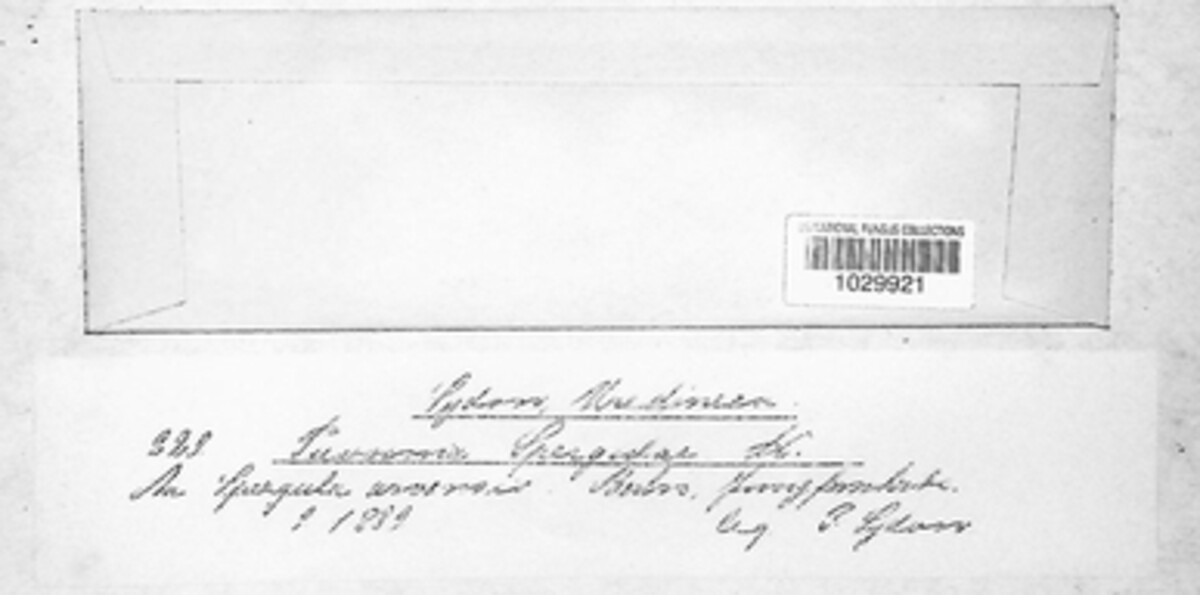 US NATIONAL FUNGUS COLLECTIONS
1029921
Sydow, Uredineen.
Puccinia Spergulae
An Spergula arvensis. Berlin, Jungfernheide.
9 1889 leg. P. Sydow